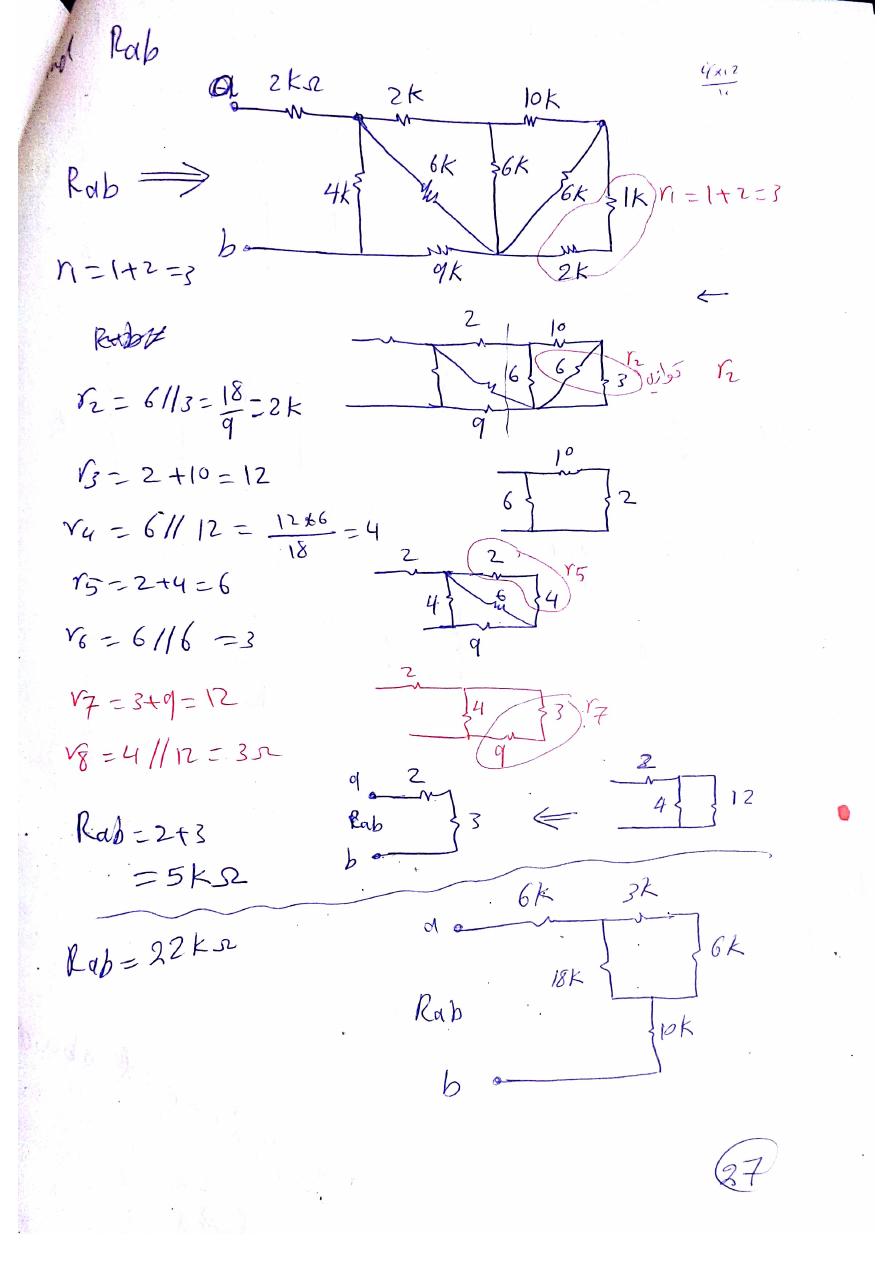 Rab
4×12
a 2kΩ 2K 10K
Rab ⟹ 4k 6K 6K 6K 1K r1 = 1+2=3
b 9K 2K
r1=1+2=3
←
2 10
6 6 3 r2 توازي r2
9
r2 = 6//3 = 18/9 = 2K
r3 = 2+10 = 12
10
6 2
r4 = 6//12 = 12*6/18 = 4
2 2 r5
4 6 4
9
r5 = 2+4=6
r6 = 6//6 = 3
2
4 3 r7
9
r7 = 3+9=12
r8 = 4//12 = 3Ω
a 2
Rab 3 ⇐
b
2
4 12
Rab = 2+3
= 5kΩ
6k 3k
a
18K 6K
Rab = 22kΩ
Rab
10K
b
27